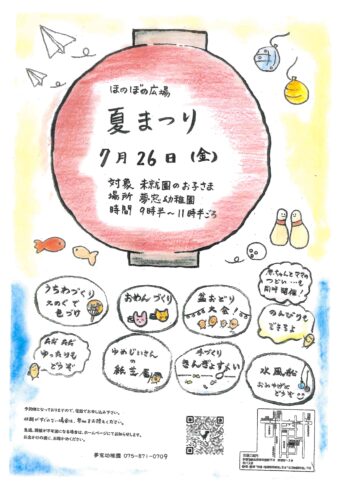 ほのぼの広場
夏まつり
7月26日(金)
対象 未就園のお子さま
場所 夢窓幼稚園
時間 9時半〜11時半ごろ
赤ちゃんとママの
つどい…も
同時開催!
うちわづくり
えのぐで
色づけ
おめんづくり
盆おどり
大会!
のんびりも
できるよ
ゆったりも
どうぞ
ゆめじいさんの
紙芝居
手づくり
きんぎょすくい
水風船
おみやげに
どうぞ
夢窓幼稚園 075-871-0709